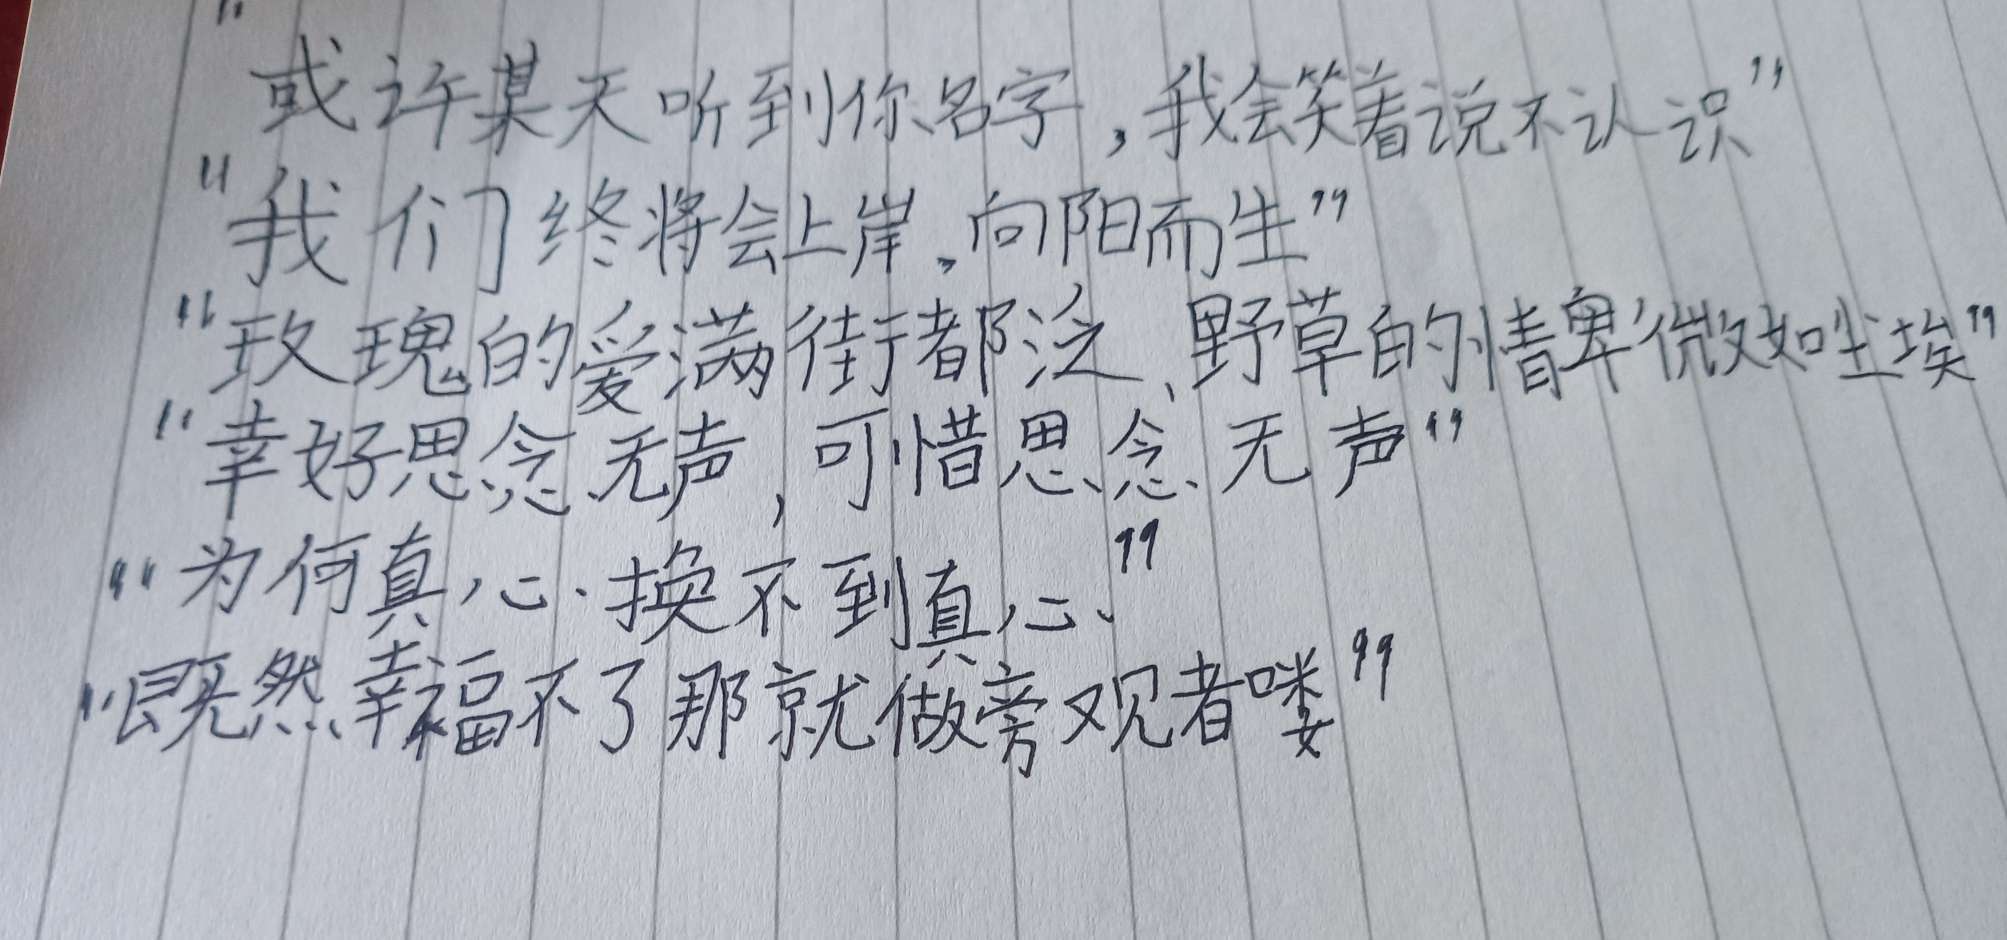 "或许某天听到你名字,我会笑着说不认识"
"我们终将会上岸,向阳而生"
"玫瑰的爱满街都泛、野草的情卑微如尘埃"
"幸好思念无声,可惜思念无声"
"为何真心换不到真心"
"既然幸福不了那就做旁观者喽"